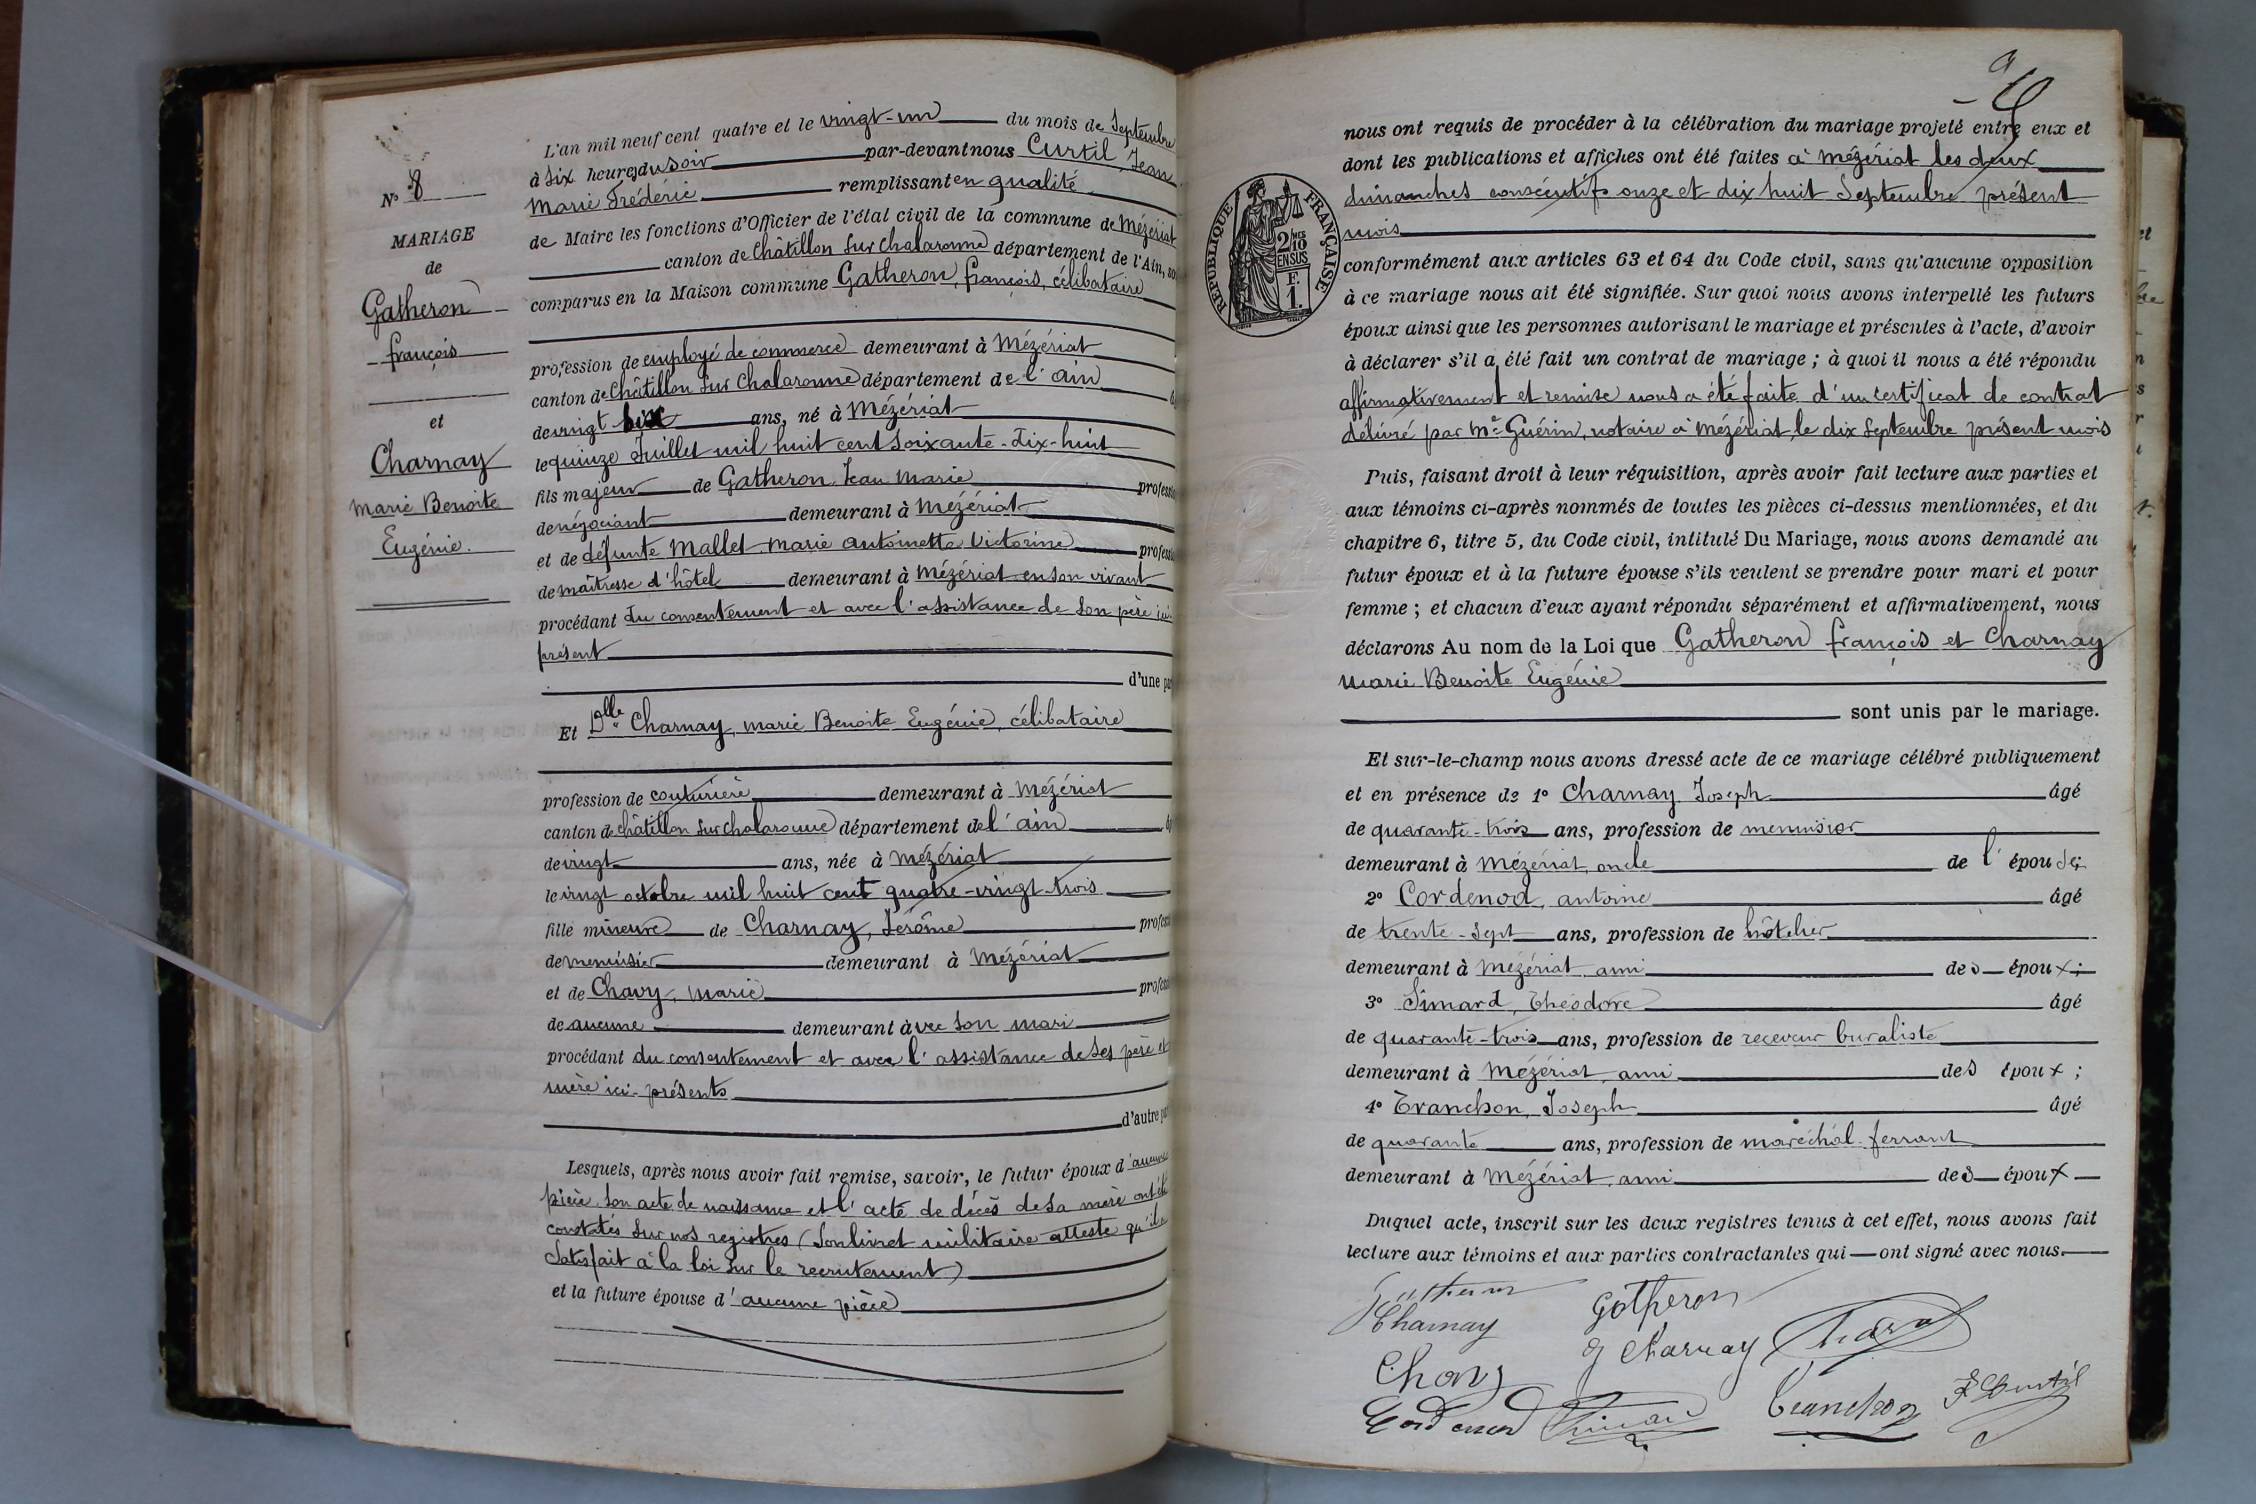 N° 8
MARIAGE
de
Gatheron
François
et
Charnay
Marie Benoite
Eugénie.
L'an mil neuf cent quatre et le vingt-un du mois de Septembre
à six heures du soir par-devant nous Curtil, Jean
Marie Frédéric remplissant en qualité
de Maire les fonctions d'Officier de l'état civil de la commune de Mézériat
canton de Châtillon sur Chalaronne département de l'Ain, so
comparus en la Maison commune Gatheron, François, célibataire
profession de employé de commerce demeurant à Mézériat
canton de Châtillon sur Chalaronne département de l'ain
de vingt six ans, né à Mézériat
le quinze Juillet mil huit cent soixante-dix-huit
fils majeur de Gatheron Jean Marie professi
de négociant demeurant à Mézériat
et de défunte Mallet Marie Antoinette Victorine professi
de maîtresse d'hôtel demeurant à Mézériat en son vivant
procédant du consentement et avec l'assistance de son père ici
présent
d'une par
Et Dlle Charnay, Marie Benoite Eugénie, célibataire
profession de couturière demeurant à Mézériat
canton de Châtillon sur Chalaronne département de l'ain
de vingt ans, née à Mézériat
le vingt octobre mil huit cent quatre-vingt-trois
fille mineure de Charnay, Jérôme profess
de menuisier demeurant à Mézériat
et de Chavy, Marie profess
de aucune demeurant avec son mari
procédant du consentement et avec l'assistance de ses père et
mère ici présents
d'autre par
Lesquels, après nous avoir fait remise, savoir, le futur époux d'aucune
pièce son acte de naissance et l'acte de décès de sa mère ont été
constatés sur nos registres (son livret militaire atteste qu'il a
satisfait à la loi sur le recrutement)
et la future épouse d'aucune pièce
9
nous ont requis de procéder à la célébration du mariage projeté entre eux et
dont les publications et affiches ont été faites à Mézériat les deux
dimanches consécutifs onze et dix huit Septembre présent
mois
RÉPUBLIQUE FRANÇAISE
2/10 MES
EN SUS
F.
1.
conformément aux articles 63 et 64 du Code civil, sans qu'aucune opposition
à ce mariage nous ait été signifiée. Sur quoi nous avons interpellé les futurs
époux ainsi que les personnes autorisant le mariage et présentes à l'acte, d'avoir
à déclarer s'il a été fait un contrat de mariage ; à quoi il nous a été répondu
affirmativement et remise nous a été faite d'un certificat de contrat
délivré par Me Guérin, notaire à Mézériat, le dix Septembre présent mois
Puis, faisant droit à leur réquisition, après avoir fait lecture aux parties et
aux témoins ci-après nommés de toutes les pièces ci-dessus mentionnées, et du
chapitre 6, titre 5, du Code civil, intitulé Du Mariage, nous avons demandé au
futur époux et à la future épouse s'ils veulent se prendre pour mari et pour
femme ; et chacun d'eux ayant répondu séparément et affirmativement, nous
déclarons Au nom de la Loi que Gatheron François et Charnay
Marie Benoite Eugénie
sont unis par le mariage.
Et sur-le-champ nous avons dressé acte de ce mariage célébré publiquement
et en présence de 1° Charnay Joseph âgé
de quarante-trois ans, profession de menuisier
demeurant à Mézériat, oncle de l'épouse;
2° Cordenod, antoine âgé
de trente-sept ans, profession de hôtelier
demeurant à Mézériat, ami des époux;
3° Simard, Théodore âgé
de quarante-trois ans, profession de receveur buraliste
demeurant à Mézériat, ami des époux ;
4° Tranchon, Joseph âgé
de quarante ans, profession de maréchal-ferrant
demeurant à Mézériat, ami des époux
Duquel acte, inscrit sur les deux registres tenus à cet effet, nous avons fait
lecture aux témoins et aux parties contractantes qui ont signé avec nous.
Gatheron
E Charnay
J Charnay
Cordenod
Tranchon
F Curtil